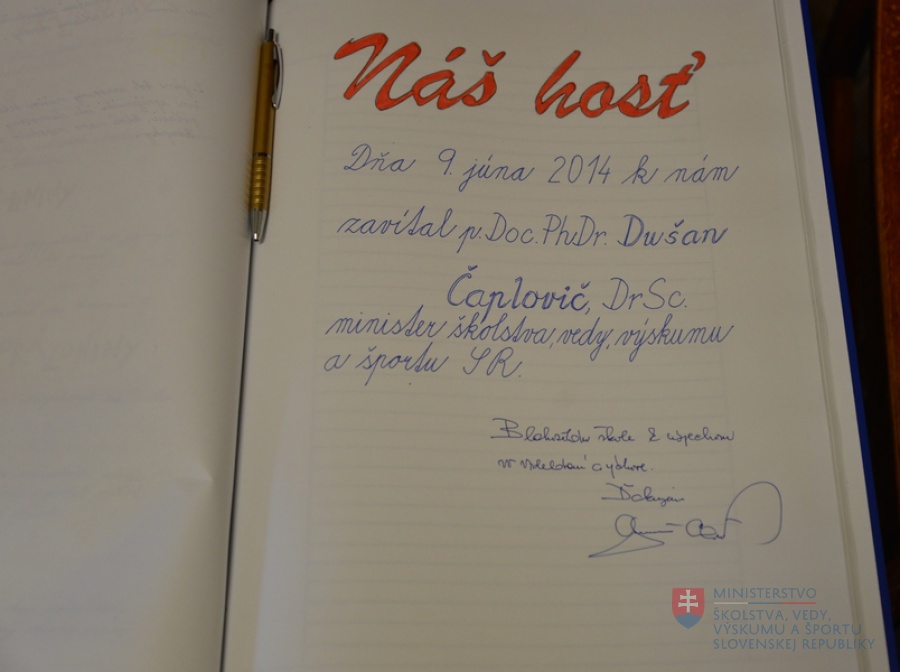 Náš hosť
Dňa 9. júna 2014 k nám
zavítal p. Doc. PhDr. Dušan
Čaplovič, DrSc.
minister školstva, vedy, výskumu
a športu SR.
Blahoželám škole k úspechom
vo vzdelaní a výchove.
Ďakujem
MINISTERSTVO
ŠKOLSTVA, VEDY,
VÝSKUMU A ŠPORTU
SLOVENSKEJ REPUBLIKY